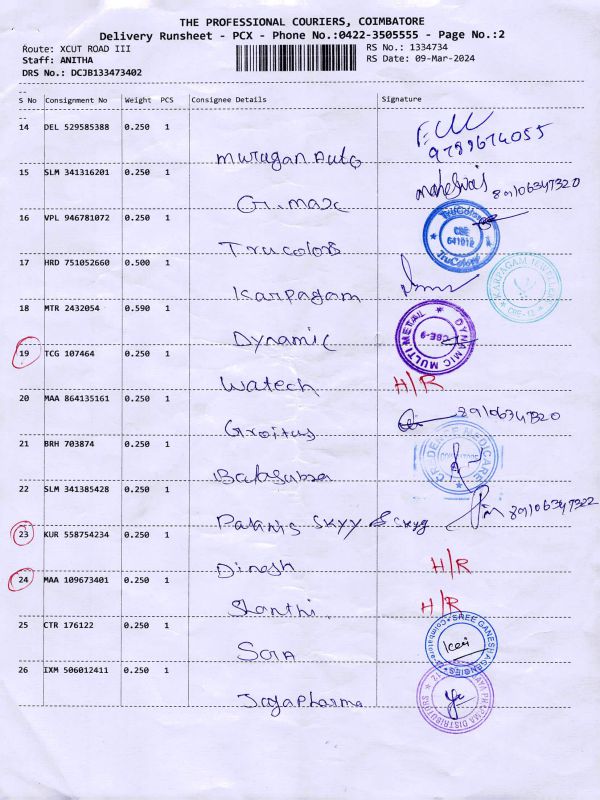 THE PROFESSIONAL COURIERS, COIMBATORE
Delivery Runsheet - PCX - Phone No.:0422-3505555 - Page No.:2
Route: XCUT ROAD III
RS No.: 1334734
Staff: ANITHA
RS Date: 09-Mar-2024
DRS No.: DCJB133473402
S No Consignment No Weight PCS Consignee Details Signature
14 DEL 529585388 0.250 1
Murugan Auto 9789674055
15 SLM 341316201 0.250 1
G.max 89106347320
16 VPL 946781072 0.250 1
Trucolors TruColors CBE 641012 TruColors
17 HRD 751052660 0.500 1
Karpagam KARPAGAM JEWELLERS CBE-12
18 MTR 2432054 0.590 1
Dynamic DYNAMIC MULTIMETAL CBE-9
19 TCG 107464 0.250 1
Watech H/R
20 MAA 864135161 0.250 1
Groitus 89106347320
21 BRH 703874 0.250 1
Balasubra
22 SLM 341385428 0.250 1
Palanis Skyy 89106347322
23 KUR 558754234 0.250 1
Dinesh H/R
24 MAA 109673401 0.250 1
Shanthi. H/R
25 CTR 176122 0.250 1
SREE GANESH AGENCIES Coimbatore
26 IXM 506012411 0.250 1
Jaya Pharma JAYA PHARMA DISTRIBUTORS